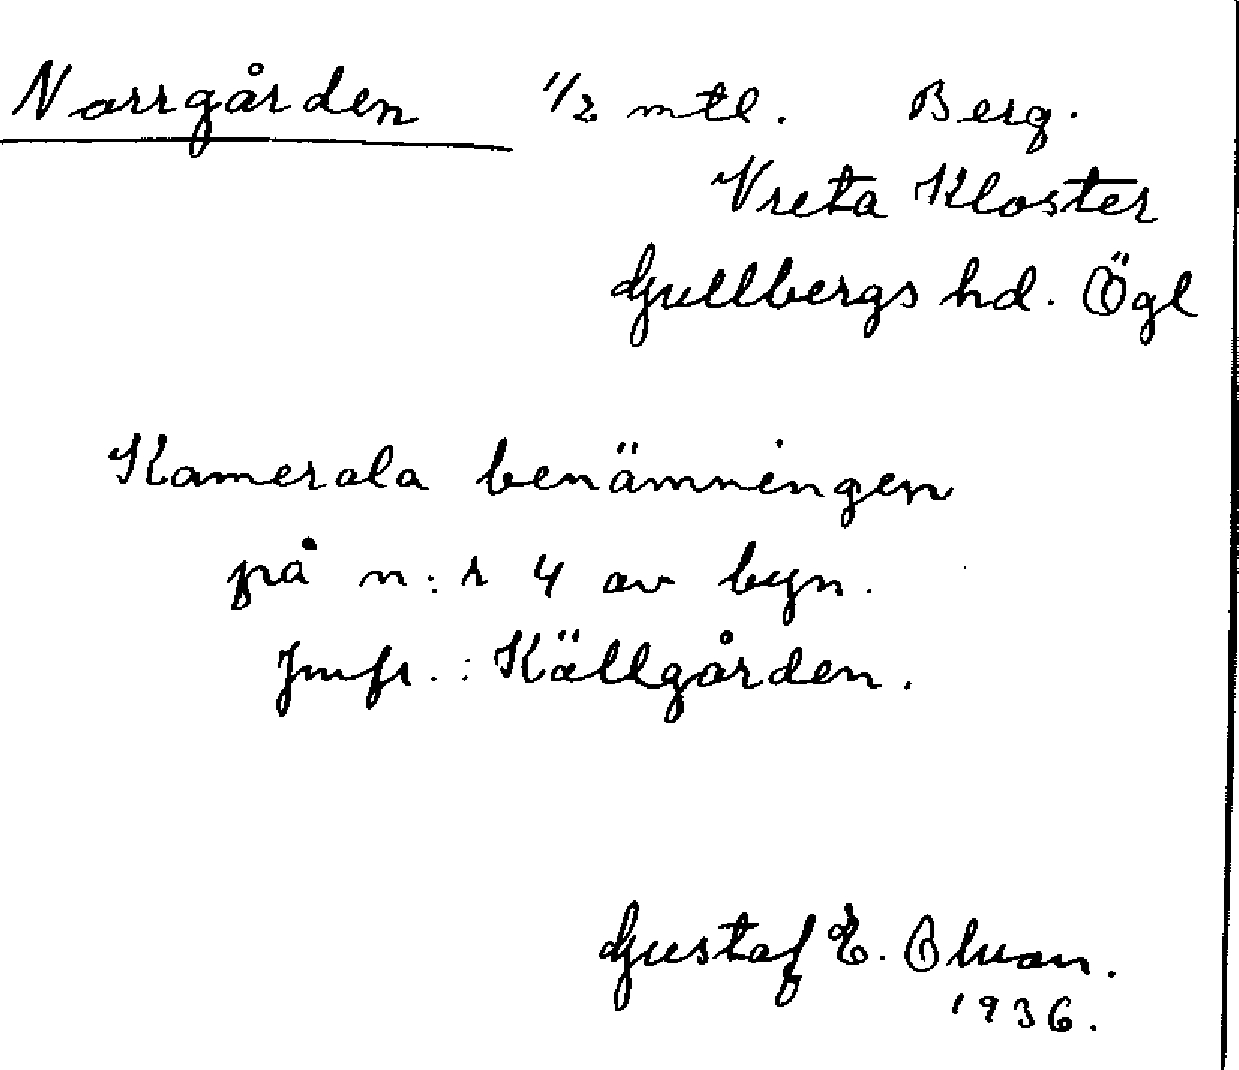 Norrgården 1/2 mtl. Berg.
Vreta Kloster
Gullbergs hd. Ögl
Kamerala benämningen
på n:r 4 av byn.
Jmfr.: Källgården.
Gustaf E. Olson.
1936.